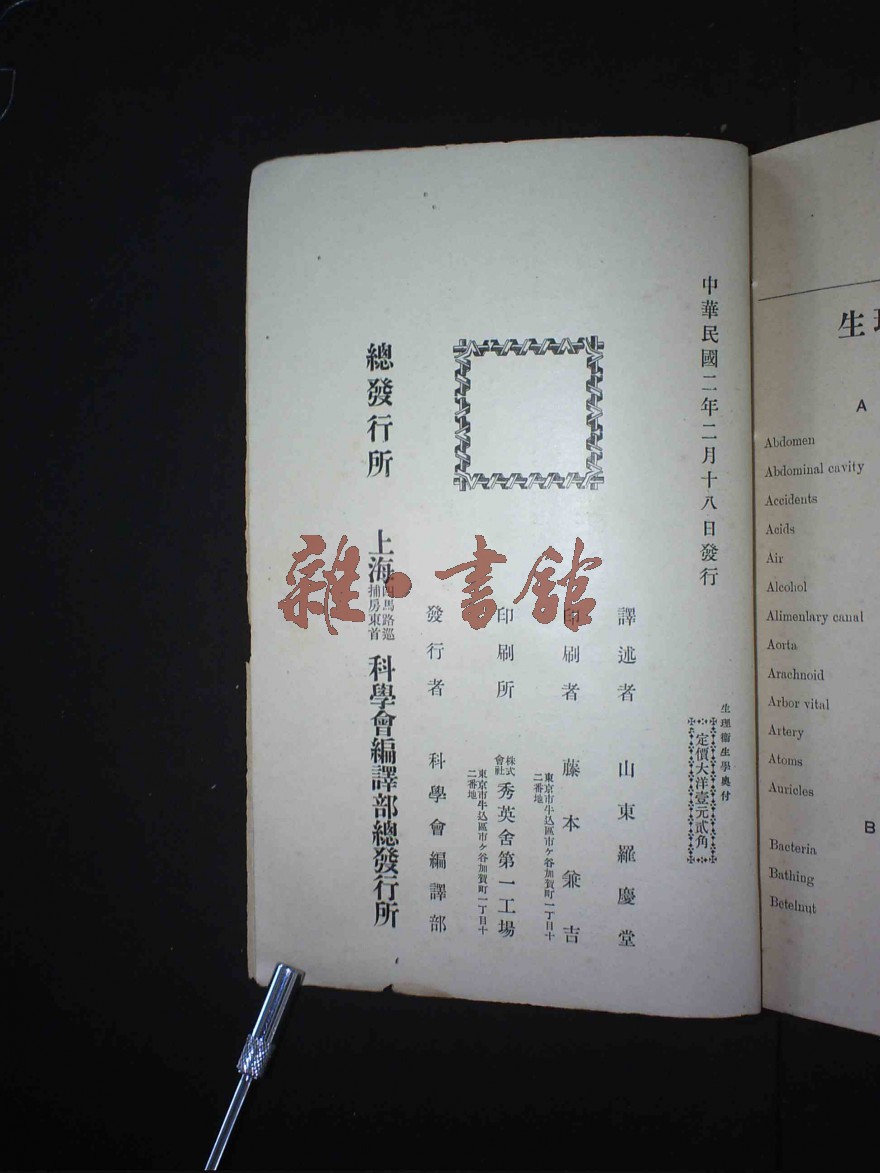 中華民國二年二月十八日發行
生理衞生學奧付
定價大洋壹元貳角
譯述者 山東羅慶堂
印刷者 藤本兼吉
東京市牛込區市ケ谷加賀町一丁目十二番地
印刷所 株式會社秀英舍第一工場
東京市牛込區市ケ谷加賀町一丁目十二番地
發行者 科學會編譯部
總發行所 上海四馬路巡捕房東首 科學會編譯部總發行所
雜·書館
生理
A
Abdomen
Abdominal cavity
Accidents
Acids
Air
Alcohol
Alimenlary canal
Aorta
Arachnoid
Arbor vital
Artery
Atoms
Auricles
B
Bacteria
Bathing
Betelnut